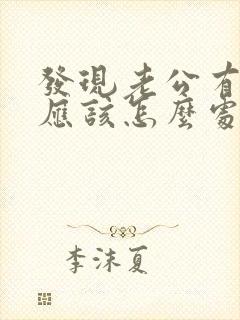 發現老公有
應該怎麼處
李沫夏